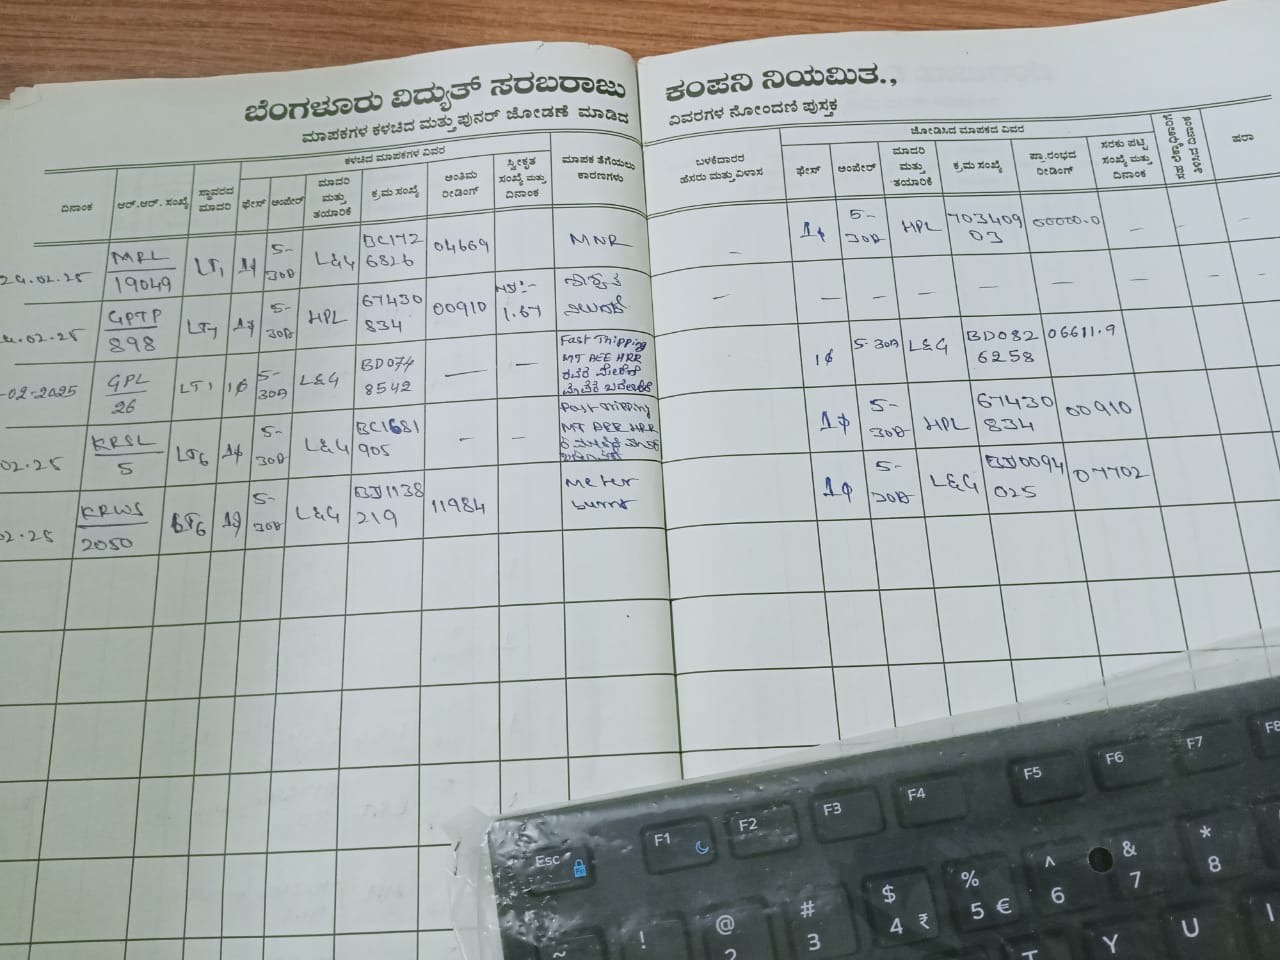 ಬೆಂಗಳೂರು ವಿದ್ಯುತ್ ಸರಬರಾಜು ಕಂಪನಿ ನಿಯಮಿತ.,
ಮಾಪಕಗಳ ಕಳಚಿದ ಮತ್ತು ಪುನರ್ ಜೋಡಣೆ ಮಾಡಿದ ವಿವರಗಳ ನೋಂದಣಿ ಪುಸ್ತಕ
ಕಳಚಿದ ಮಾಪಕಗಳ ವಿವರ
ಜೋಡಿಸಿದ ಮಾಪಕದ ವಿವರ
ದಿನಾಂಕ ಆರ್.ಆರ್. ಸಂಖ್ಯೆ ಸ್ಥಾವರದ ಮಾದರಿ ಫೇಸ್ ಆಂಪೇರ್ ಮಾದರಿ ಮತ್ತು ತಯಾರಿಕೆ ಕ್ರಮ ಸಂಖ್ಯೆ ಅಂತಿಮ ರೀಡಿಂಗ್ ಸ್ವೀಕೃತ ಸಂಖ್ಯೆ ಮತ್ತು ದಿನಾಂಕ ಮಾಪಕ ತೆಗೆಯಲು ಕಾರಣಗಳು
ಬಳಕೆದಾರರ ಹೆಸರು ಮತ್ತು ವಿಳಾಸ ಫೇಸ್ ಆಂಪೇರ್ ಮಾದರಿ ಮತ್ತು ತಯಾರಿಕೆ ಕ್ರಮ ಸಂಖ್ಯೆ ಪ್ರಾರಂಭದ ರೀಡಿಂಗ್ ಸರಕು ಪಟ್ಟಿ ಸಂಖ್ಯೆ ಮತ್ತು ದಿನಾಂಕ ಷರಾ
24.02.25 MRL/19049 LT1 1φ 5-30A L&G BC172 6826 04669 MNR — 1φ 5-30A HPL 703409 03 00000.0 — — —
.02.25 GPTP/898 LT7 1φ 5-30A HPL 67430 834 00910 1.67 — — — — — — — — —
-02-2025 GPL/26 LT1 1φ 5-30A L&G BD074 8542 — — Fast Thipping MT AEE HRR 1φ 5-30A L&G BD082 6258 06611.9
02.25 KRSL/5 LT6 1φ 5-30A L&G BC1681 905 — — 1φ 5-30A HPL 67430 834 00910
02.25 KRWS/2050 LT6 1φ 5-30A L&G BJ1138 219 11984 Meter burnt 1φ 5-30A L&G BJ0094 025 07702
Esc Fn F1 F2 F3 F4 F5 F6 F7 F8
~ ! @ 2 # 3 $ 4 ₹ % 5 € ^ 6 & 7 * 8
T Y U I